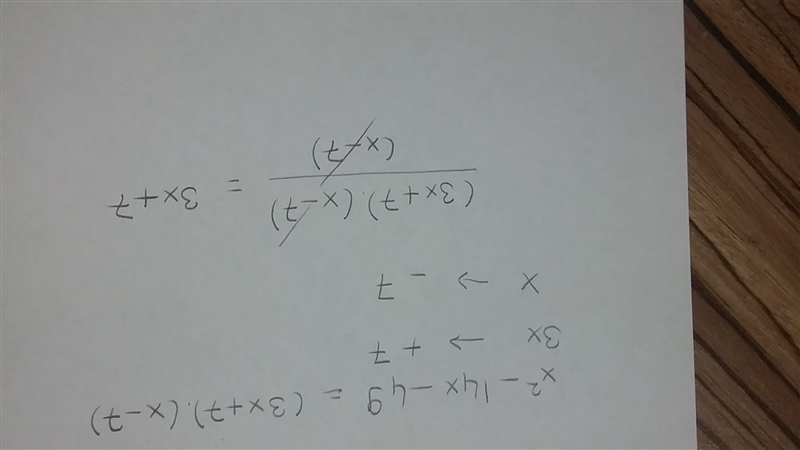 x² - 14x - 49 = (3x+7).(x-7)
3x → + 7
x → - 7
(3x+7).(x-7)
(x-7)
= 3x+7